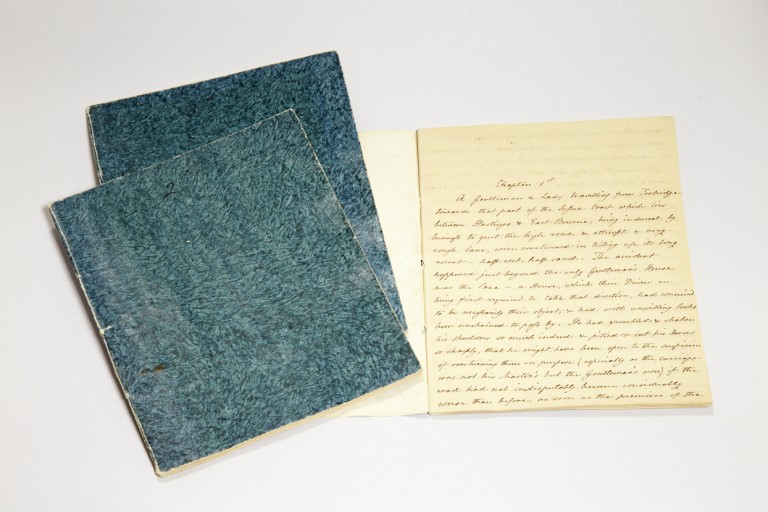 Chapter 1st
A Gentleman & Lady travelling from Tonbridge
towards that part of the Sussex Coast which lies
between Hastings & East Bourne, being induced by
business to quit the high road, & attempt a very
rough Lane, were overturned in toiling up its long
ascent — half rock, half sand. — The accident
happened just beyond the only Gentleman's House
near the Lane — a House, which their Driver on
being first required to take that direction, had conceived
to be necessarily their object, & had with unwilling looks
been constrained to pass by. He had grumbled & shaken
his shoulders so much indeed, & pitied & cut his Horses
so sharply, that he might have been open to the suspicion
of overturning them on purpose (especially as the carriage
was not his Master's but the Gentleman's own) if the
road had not indisputably become considerably
worse than before, as soon as the premises of the